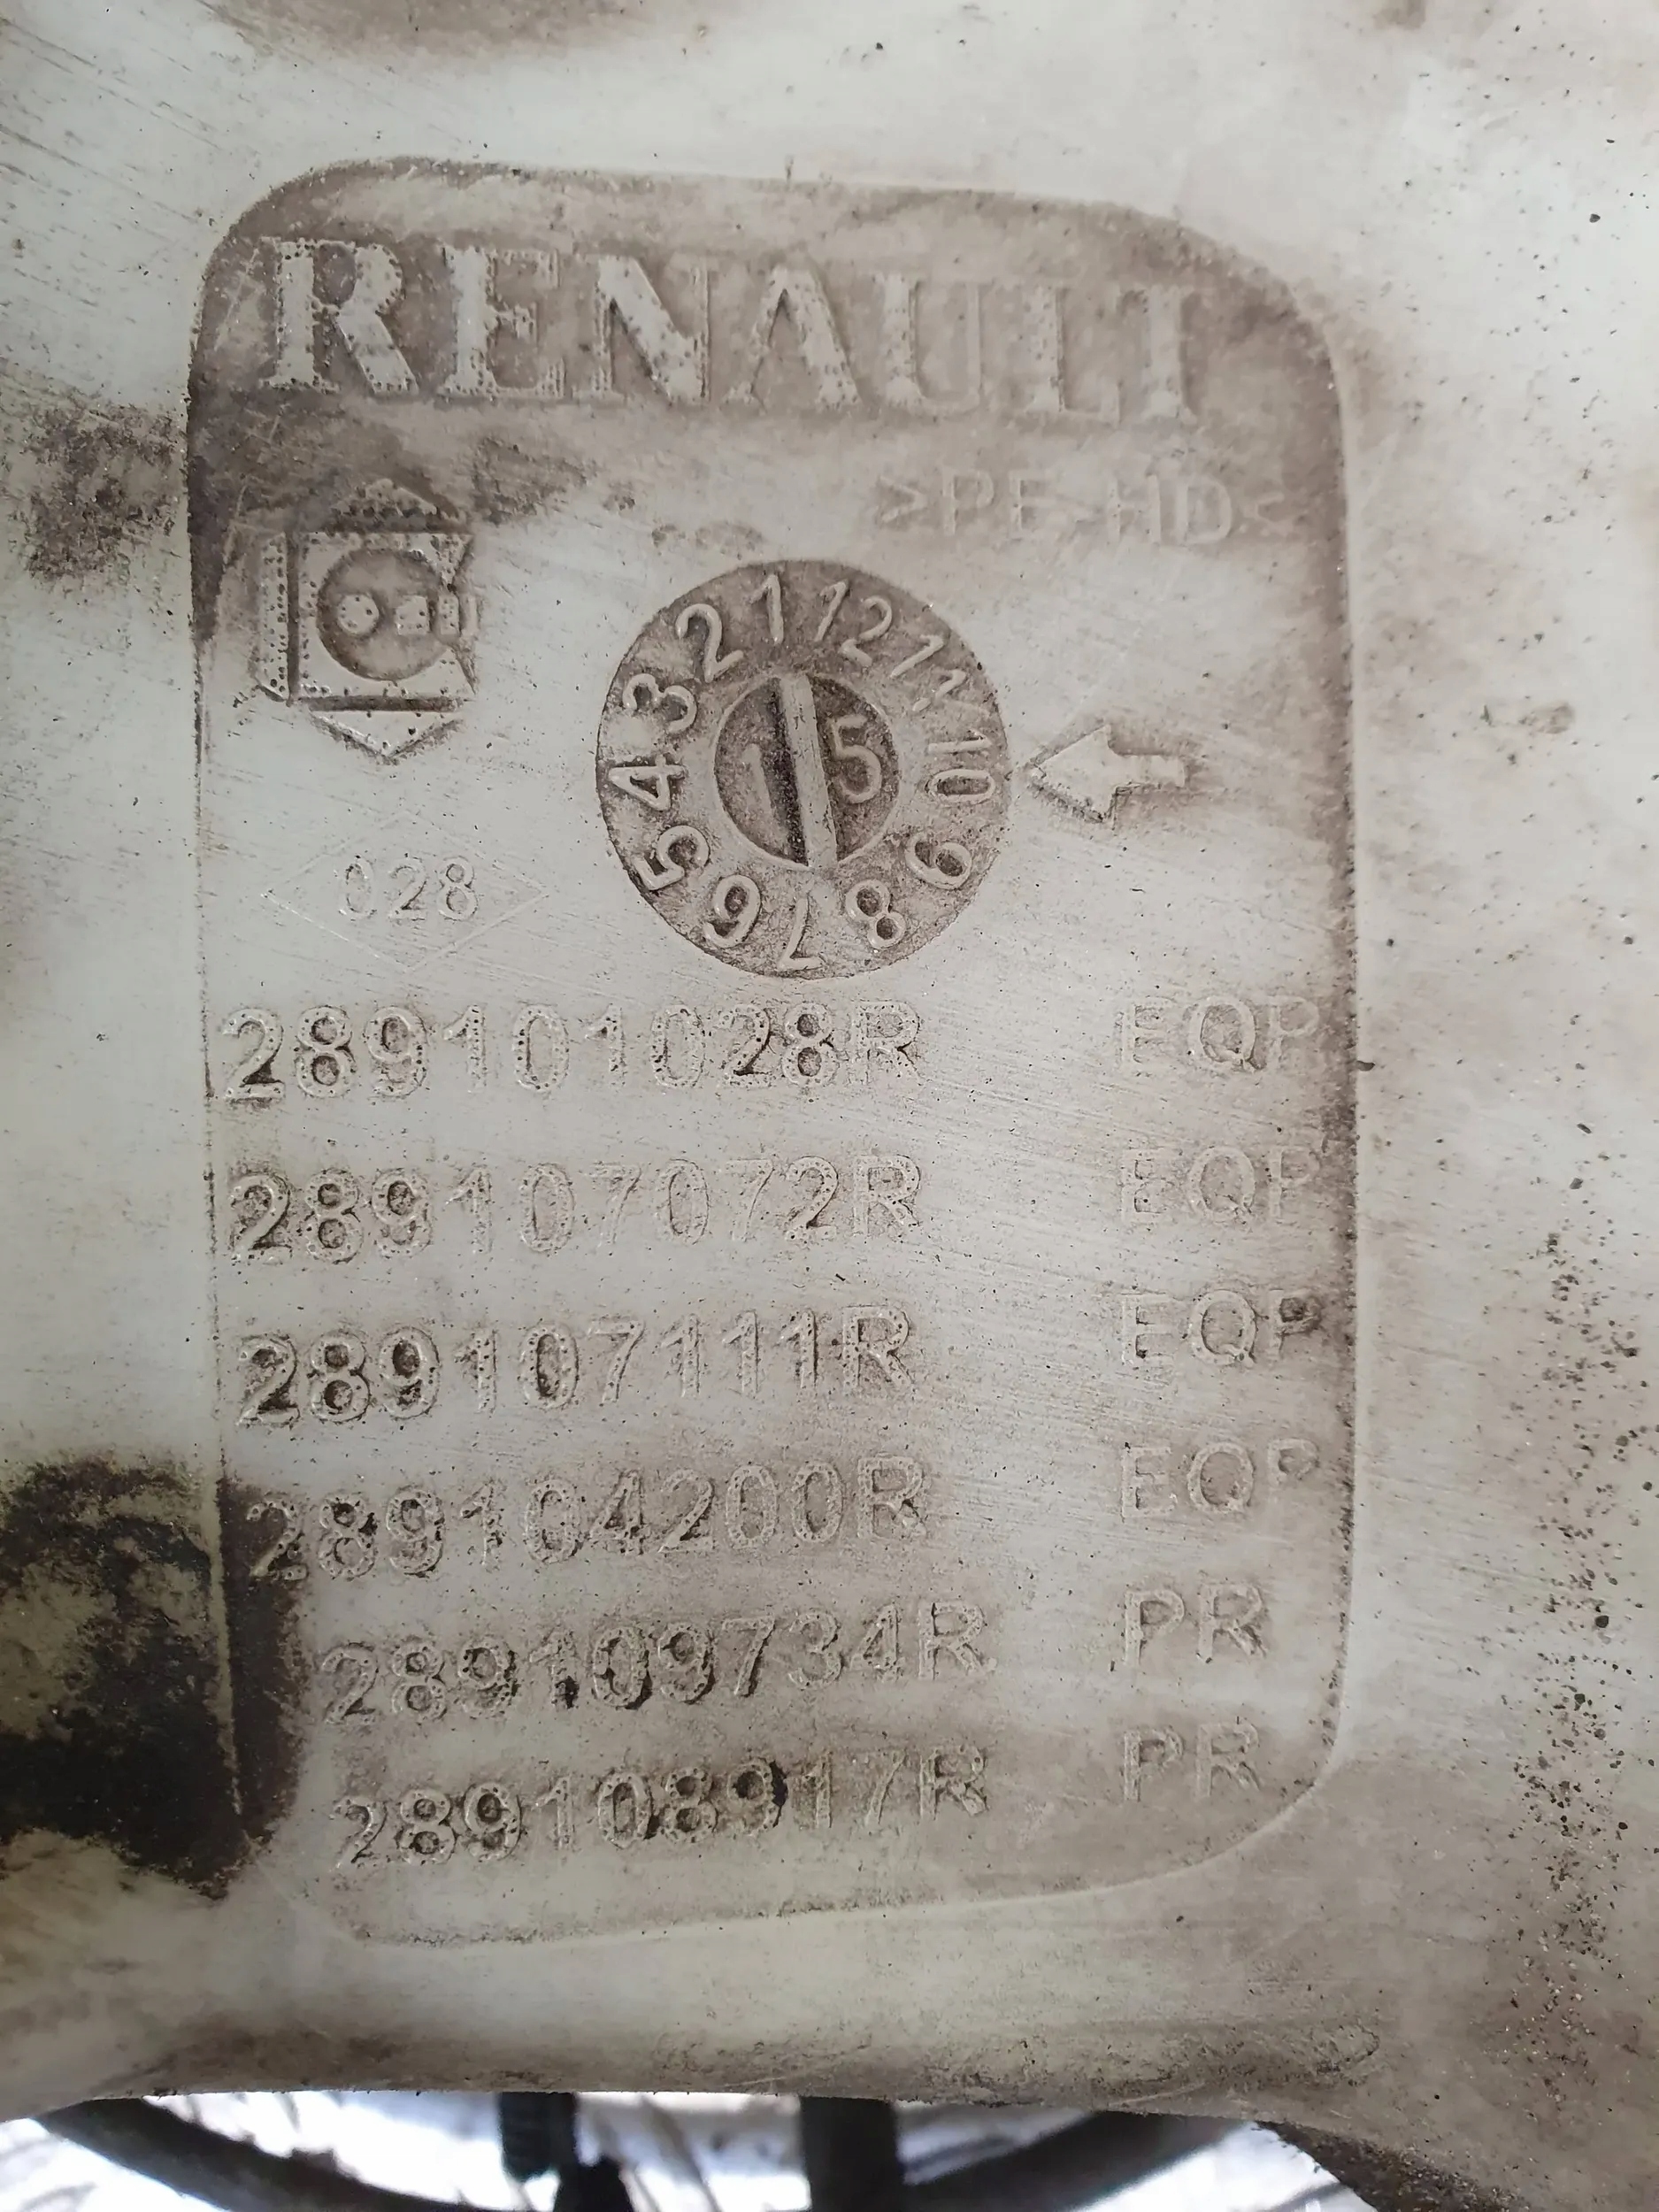 RENAULT
>PE-HD<
1 12 11 10 9 8 7 6 5 4 3 2
1 5
028
289101028R EQP
289107072R EQP
289107111R EQP
289104200R EQP
289109734R PR
289108917R PR